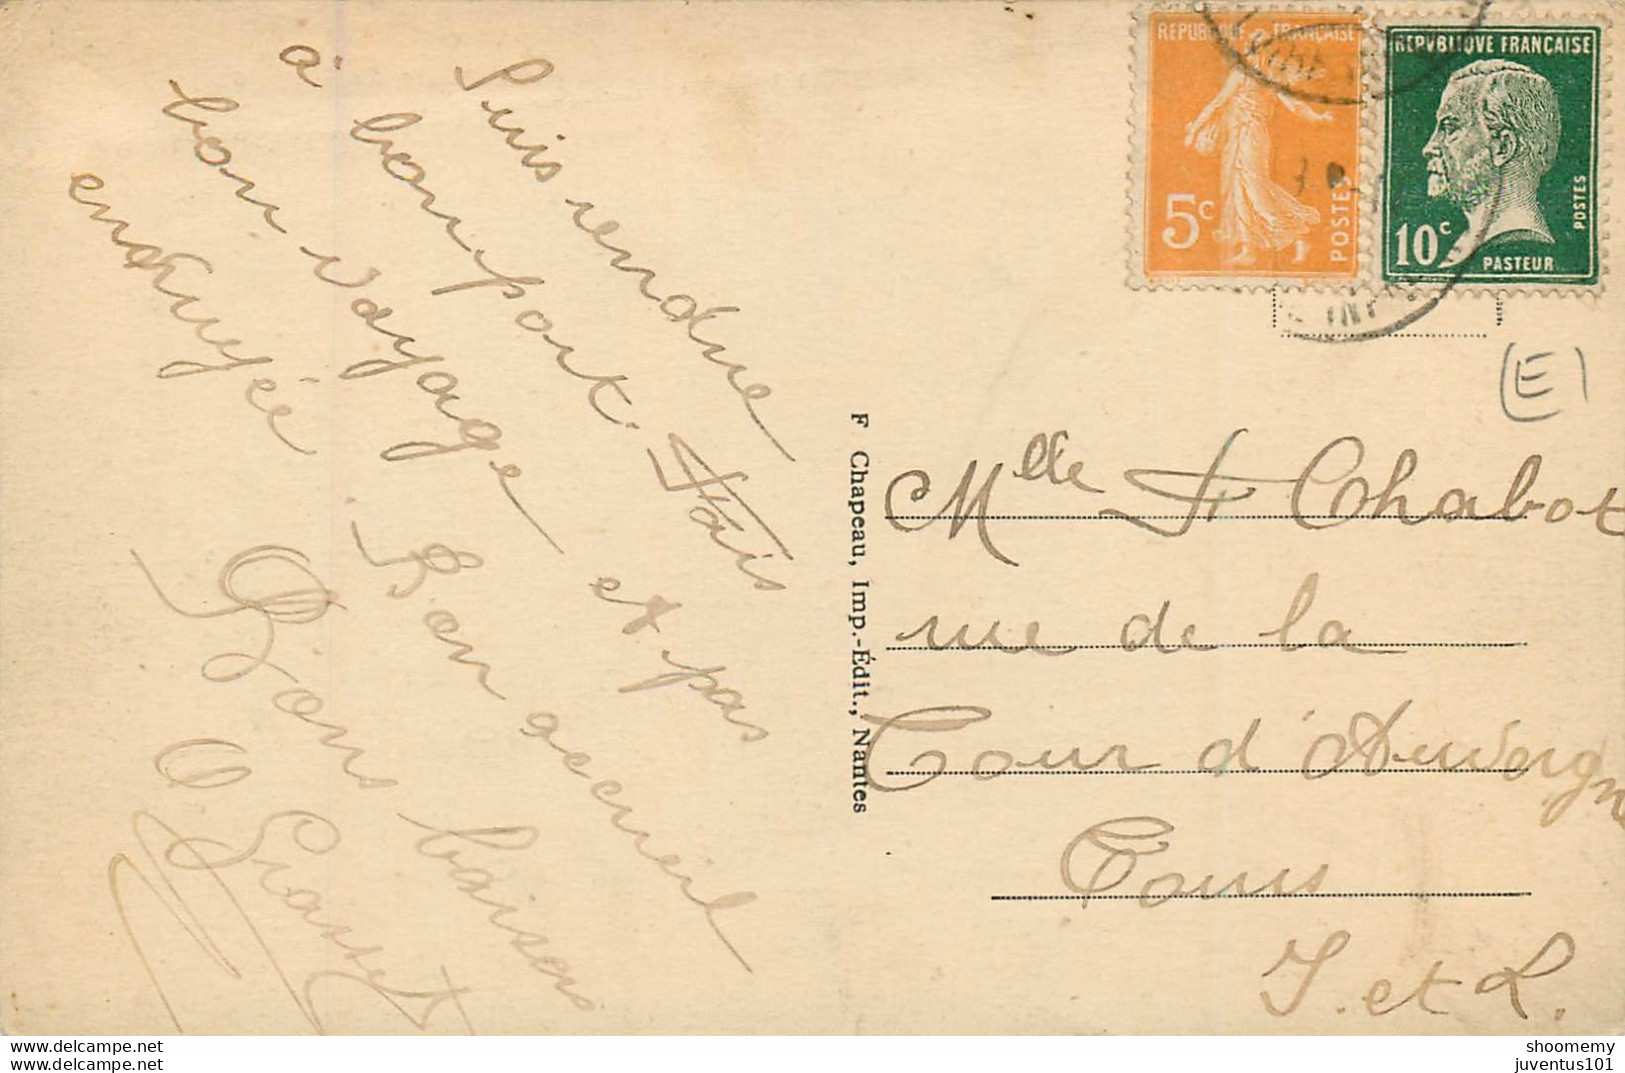 Suis rendue
à bon port. Fais
bon voyage et pas
ennuyée. Bon accueil
Bons baisers
F Chapeau, Imp.-Édit., Nantes
REPUBLIQUE FRANÇAISE
5c
POSTES
REPVBLIQVE FRANÇAISE
10c
POSTES
PASTEUR
(E)
Mlle F Chabot
rue de la
Tour d'Auvergne
Tours
I. et L.
www.delcampe.net
www.delcampe.net
shoomemy
juventus101